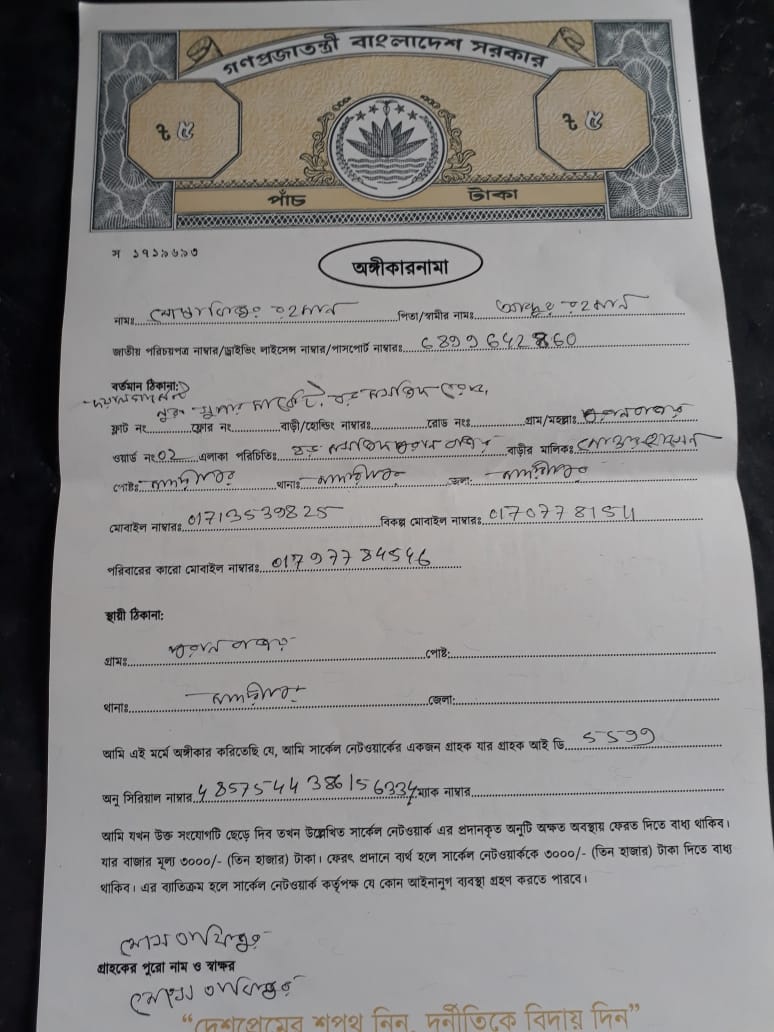 গণপ্রজাতন্ত্রী বাংলাদেশ সরকার
৳ ৫
৳ ৫
পাঁচ টাকা
অঙ্গীকারনামা
নামঃ রহমান পিতা/স্বামীর নামঃ রহমান
জাতীয় পরিচয়পত্র নাম্বার/ড্রাইভিং লাইসেন্স নাম্বার/পাসপোর্ট নাম্বারঃ
বর্তমান ঠিকানা:
ফ্লাট নং ফ্লোর নং বাড়ী/হোল্ডিং নাম্বারঃ রোড নংঃ গ্রাম/মহল্লাঃ পুরান বাজার
ওয়ার্ড নংঃ 02 এলাকা পরিচিতিঃ বড় মসজিদ পুরান বাজার বাড়ীর মালিকঃ
পোষ্টঃ মাদারীপুর থানাঃ মাদারীপুর জেলা: মাদারীপুর
মোবাইল নাম্বারঃ 01713539825 বিকল্প মোবাইল নাম্বারঃ
পরিবারের কারো মোবাইল নাম্বারঃ 01797734546
স্থায়ী ঠিকানা:
গ্রামঃ পুরান বাজার পোষ্ট:
থানাঃ মাদারীপুর জেলা:
আমি এই মর্মে অঙ্গীকার করিতেছি যে, আমি সার্কেল নেটওয়ার্কের একজন গ্রাহক যার গ্রাহক আই ডি 5599
অনু সিরিয়াল নাম্বার 4857544386156334 ম্যাক নাম্বার
আমি যখন উক্ত সংযোগটি ছেড়ে দিব তখন উল্লেখিত সার্কেল নেটওয়ার্ক এর প্রদানকৃত অনুটি অক্ষত অবস্থায় ফেরত দিতে বাধ্য থাকিব।
যার বাজার মূল্য ৩০০০/- (তিন হাজার) টাকা। ফেরৎ প্রদানে ব্যর্থ হলে সার্কেল নেটওয়ার্ককে ৩০০০/- (তিন হাজার) টাকা দিতে বাধ্য
থাকিব। এর ব্যতিক্রম হলে সার্কেল নেটওয়ার্ক কর্তৃপক্ষ যে কোন আইনানুগ ব্যবস্থা গ্রহণ করতে পারবে।
গ্রাহকের পুরো নাম ও স্বাক্ষর
“দেশপ্রেমের শপথ নিন, দুর্নীতিকে বিদায় দিন”